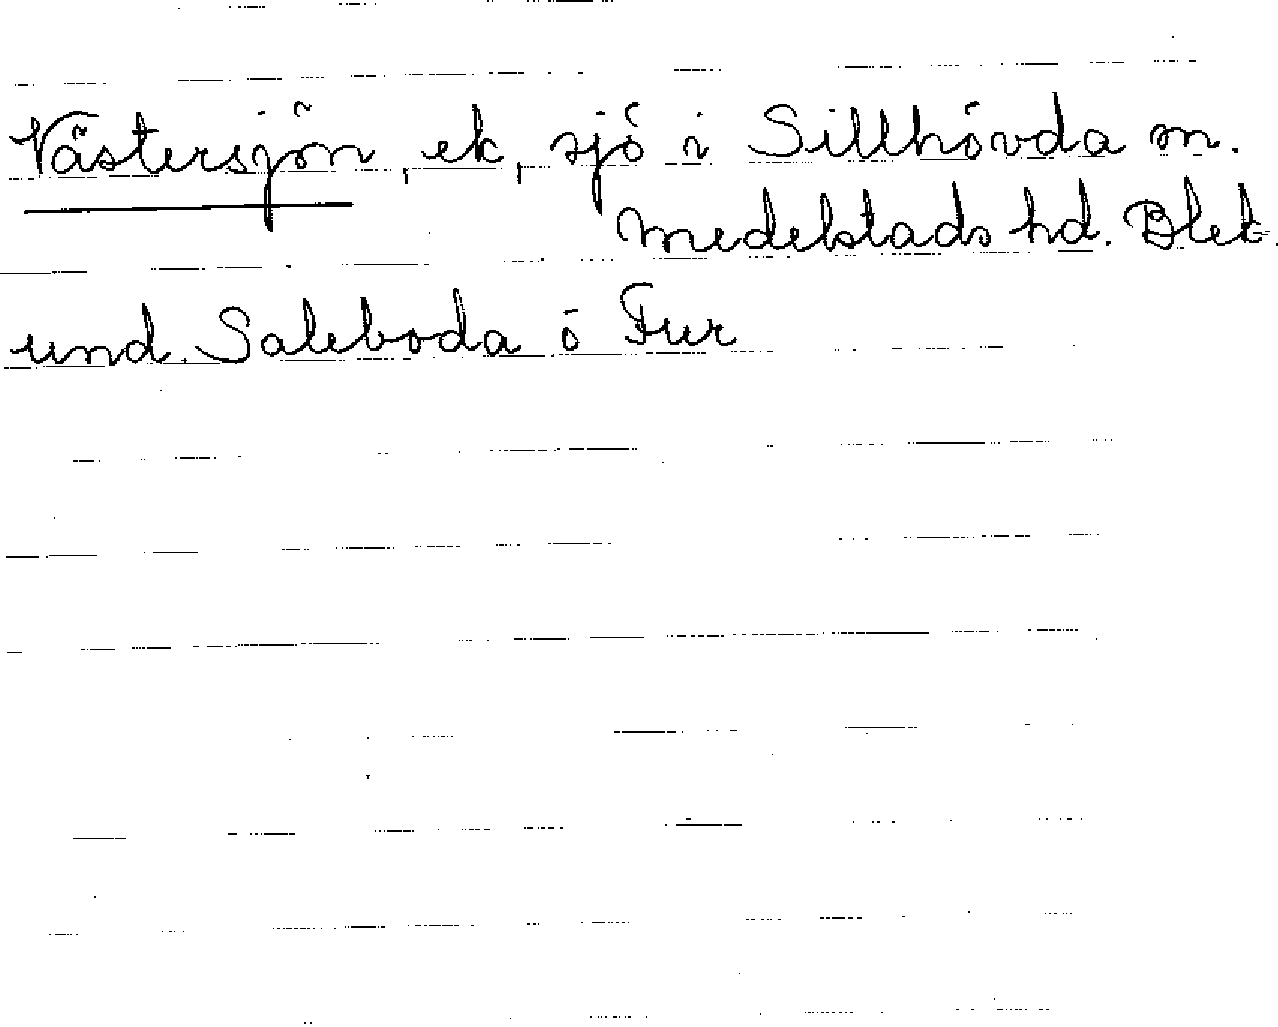 Västersjön, ek, sjö i Sillhövda sn.
Medelstads hd. Blek.
und. Saleboda ö Fur